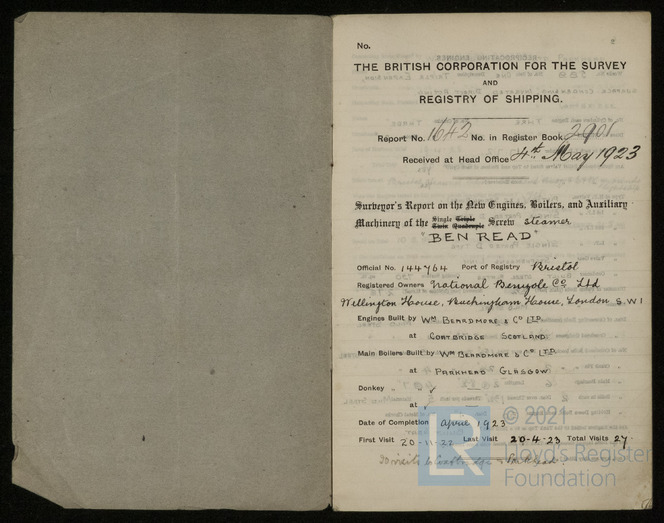 No.
THE BRITISH CORPORATION FOR THE SURVEY
AND
REGISTRY OF SHIPPING.
Report No. 1642 No. in Register Book 2901
Received at Head Office 4th May 1923
Surveyor's Report on the New Engines, Boilers, and Auxiliary
Machinery of the Single Triple Twin Quadruple Screw Steamer
"BEN READ"
Official No. 144764 Port of Registry Bristol
Registered Owners National Benzole Co Ltd
Wellington House, Buckingham House, London S.W1
Engines Built by Wm BEARDMORE & Co LTD.
at COATBRIDGE SCOTLAND
Main Boilers Built by Wm BEARDMORE & Co LTD.
at PARKHEAD GLASGOW
Donkey " ✓ —
at ✓ —
Date of Completion April 1923
First Visit 20-11-22 Last Visit 20-4-23 Total Visits 27
30 visits to Coatbridge & Parkhead.
LR © 2021
Lloyd's Register
Foundation